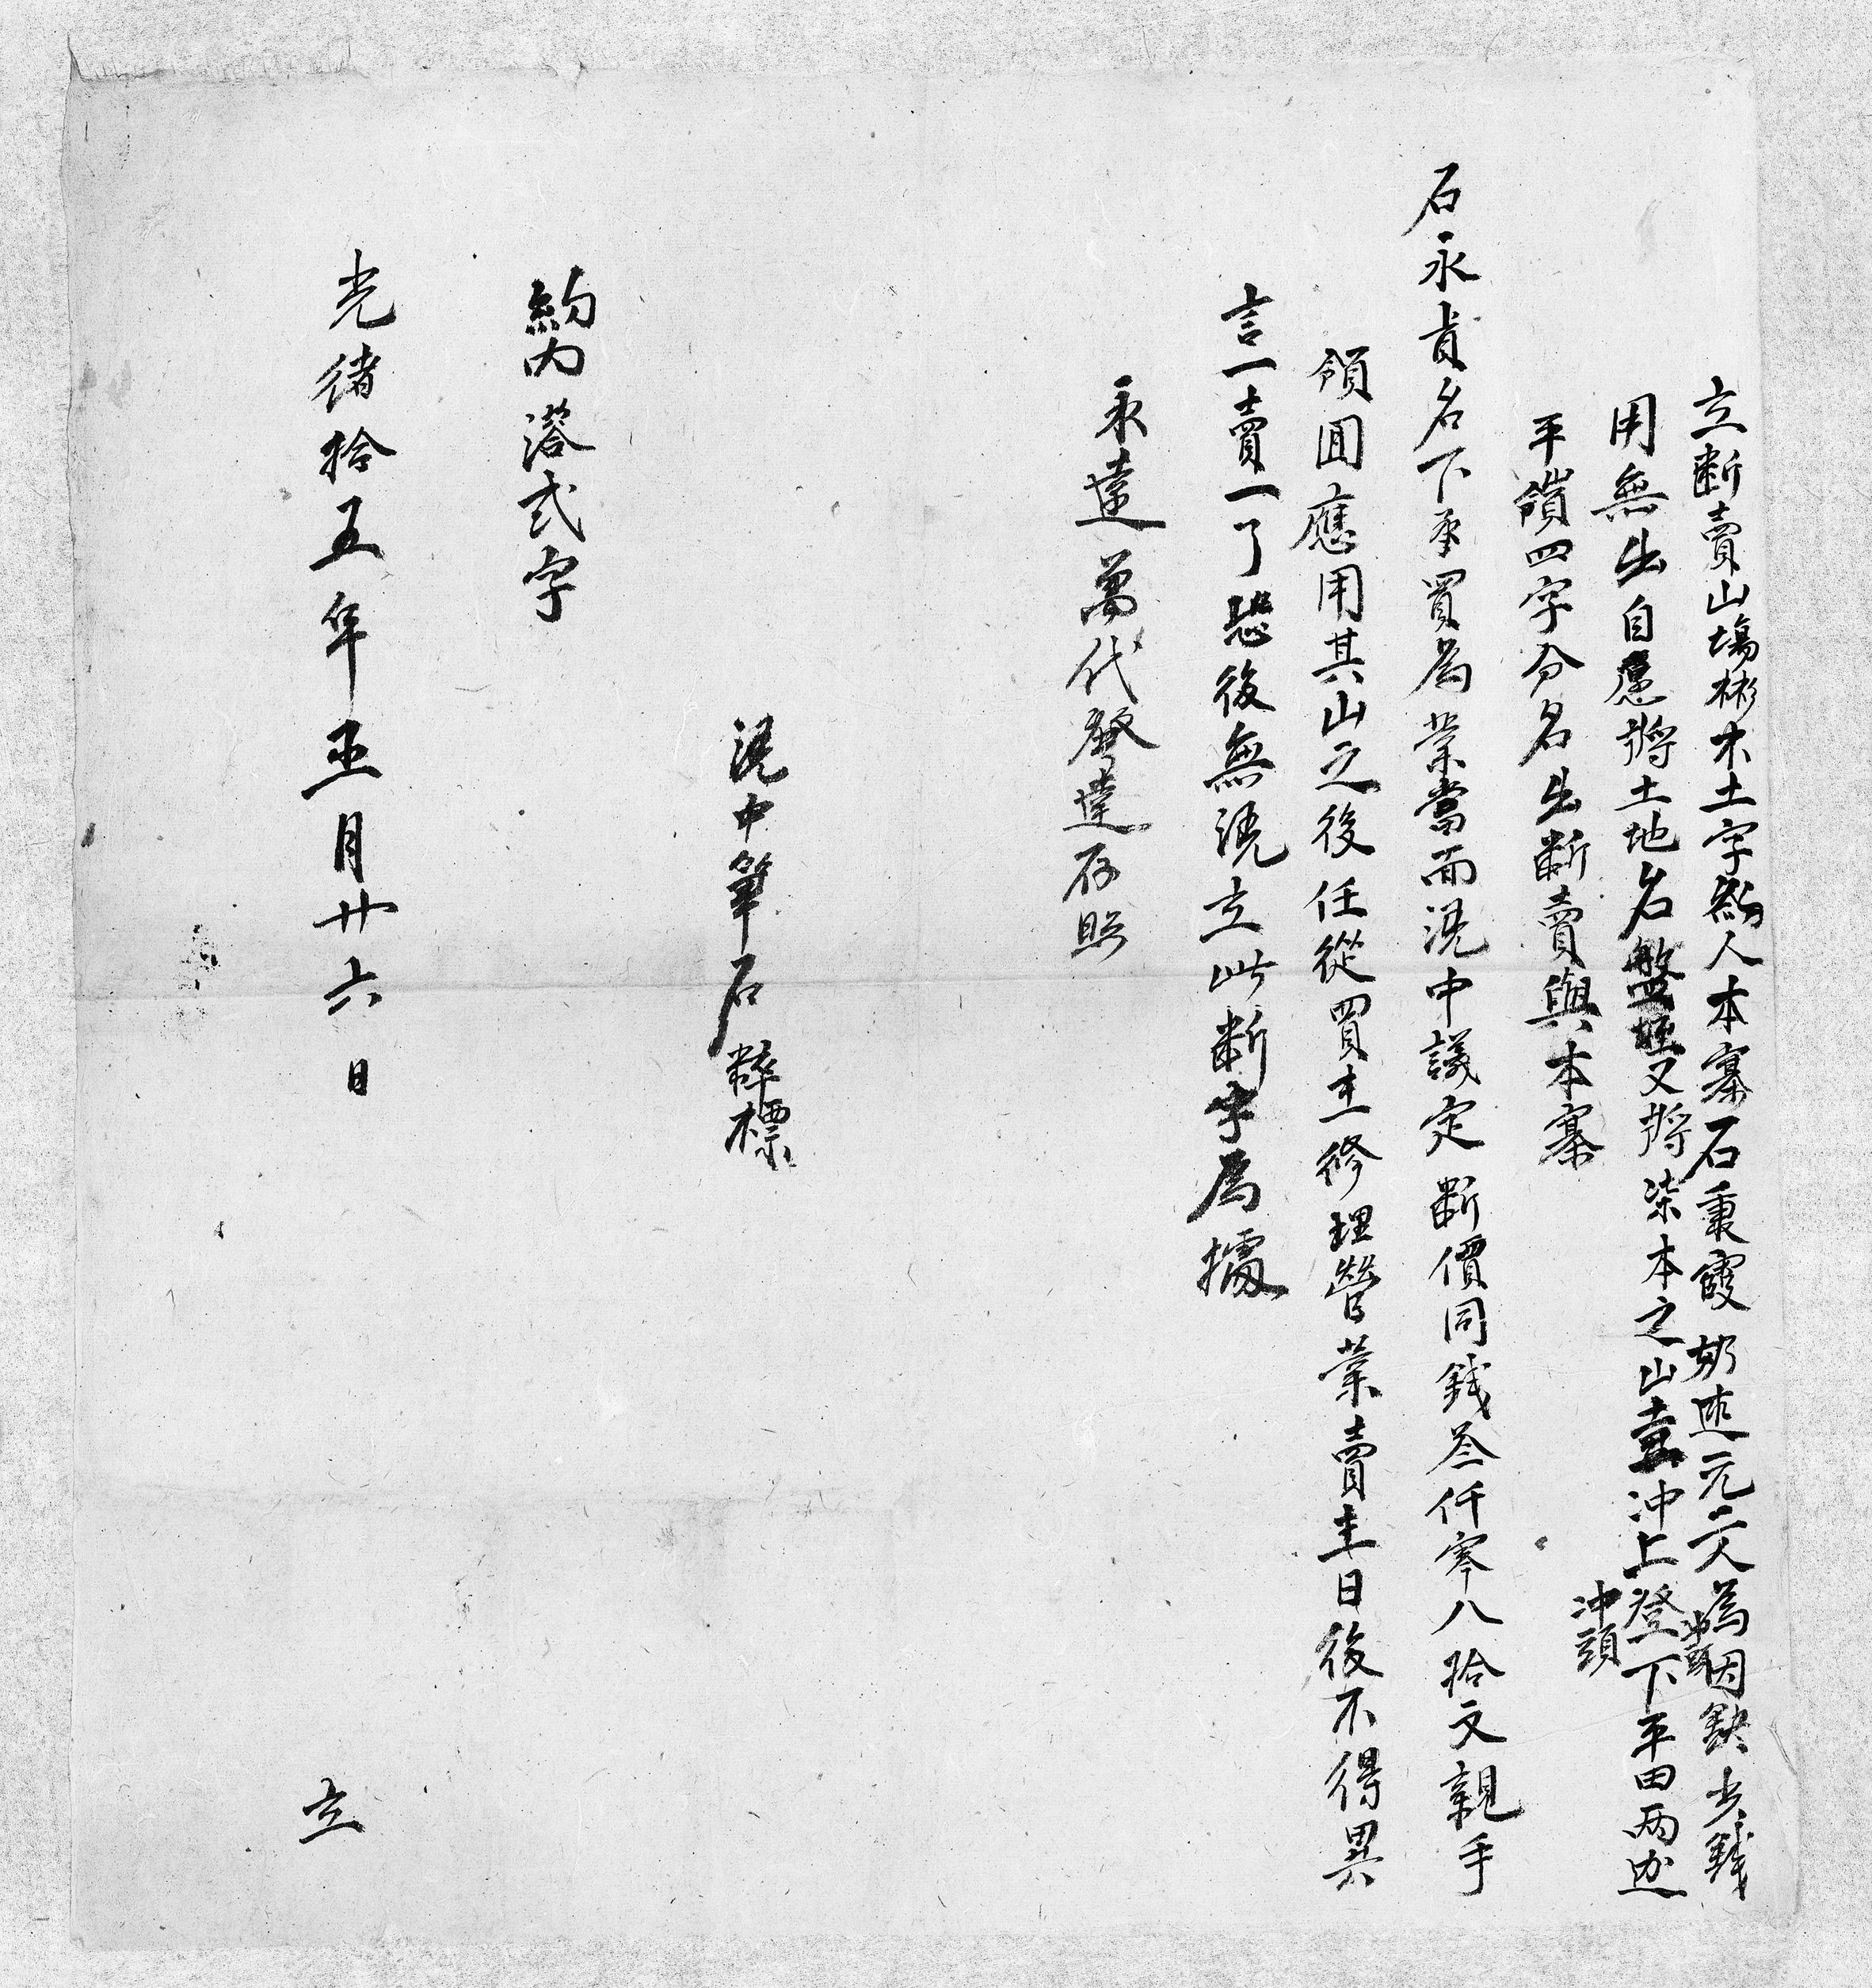 立断賣山塲彬木土字約人本寨石秉霞 元二人為因缺少錢
用無出自愿將土地名盤 又將柒本之山壹冲上登冲頭下平田两边
冲頭
平嶺四字分名出断賣與本寨
石永貴名下承買為業當面凴中議定断價同錢叁仟零八拾文親手
領回應用其山之後任從買主修理營業賣主日後不得異
言一賣一了恐後無凴立此断字為據
永遠萬代發達存照
凴中筆石粹標
約內添弍字
光绪拾五年五月廿六日 立